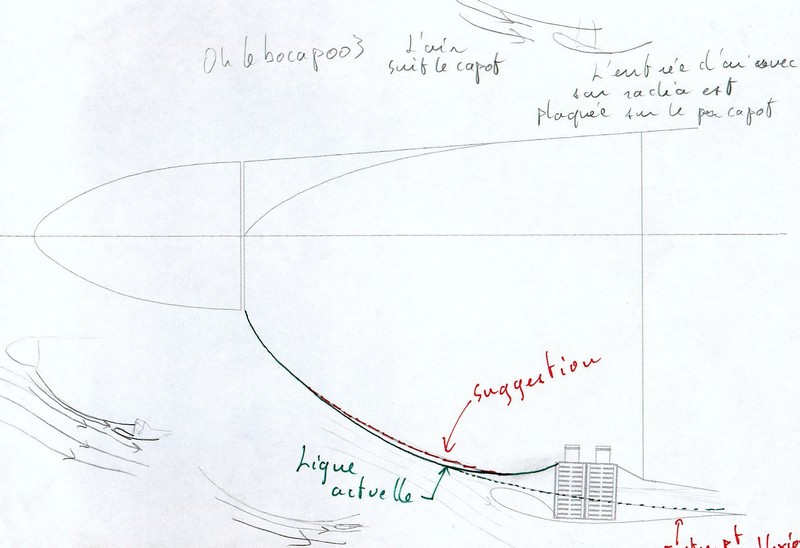 Oh le bocapoo3
L'air
suit le capot
L'entrée d'air avec
son radia est
plaquée sur le capot
suggestion
Ligne
actuelle